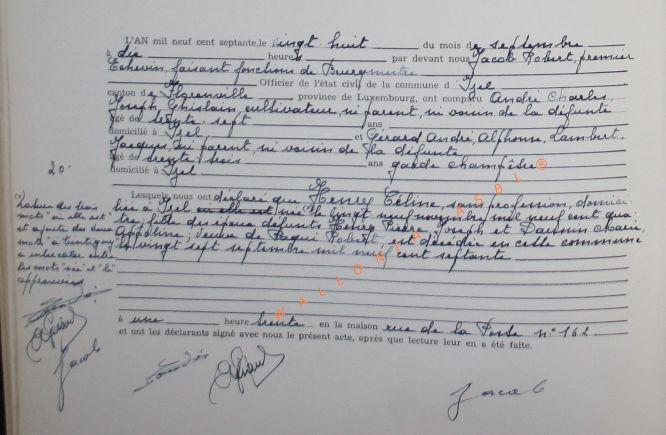 L'AN mil neuf cent septante, le vingt huit du mois de septembre
à dix heures par devant nous Jacob Robert, premier
Echevin, faisant fonctions de Bourgmestre
Officier de l'état civil de la commune d'Izel
canton de Florenville, province de Luxembourg, ont comparu André Charles
Joseph Ghislain, cultivateur, ni parent, ni voisin de la défunte
âgé de sept ans
domicilié à Izel et Gérard André, Alphonse, Lambert
Jacques, ni parent, ni voisin de la défunte
âgé de trente trois ans garde champêtre
domicilié à Izel
20.
Lesquels nous ont déclaré que Henry Céline, sans profession, domici
liée à Izel où elle est née le vingt neuf novembre mil neuf cent qua
tre, fille des époux défunts Henry Pierre, Joseph et Marie,
Appoline, veuve de Robert est décédée en cette commune
le vingt sept septembre mil neuf cent septante
à une heure trente en la maison rue de la Poste n° 162
et ont les déclarants signé avec nous le présent acte, après que lecture leur en a été faite.
mots "où elle est"
et ajoute des deux
mots "à
à intercaler entre
les mots "née" et "le"
approuvés.
Gérard
Jacob
Gérard
Jacob
WALLONIA ASBL ®